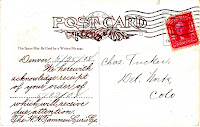 POST CARD
This Space May Be Used for a Written Message.
Denver,
We herewith
acknowledge receipt
of your order of
which will receive
due attention.
The H.H. Tammen Curio Co.
Chas. Tucker,
Del Norte
Colo